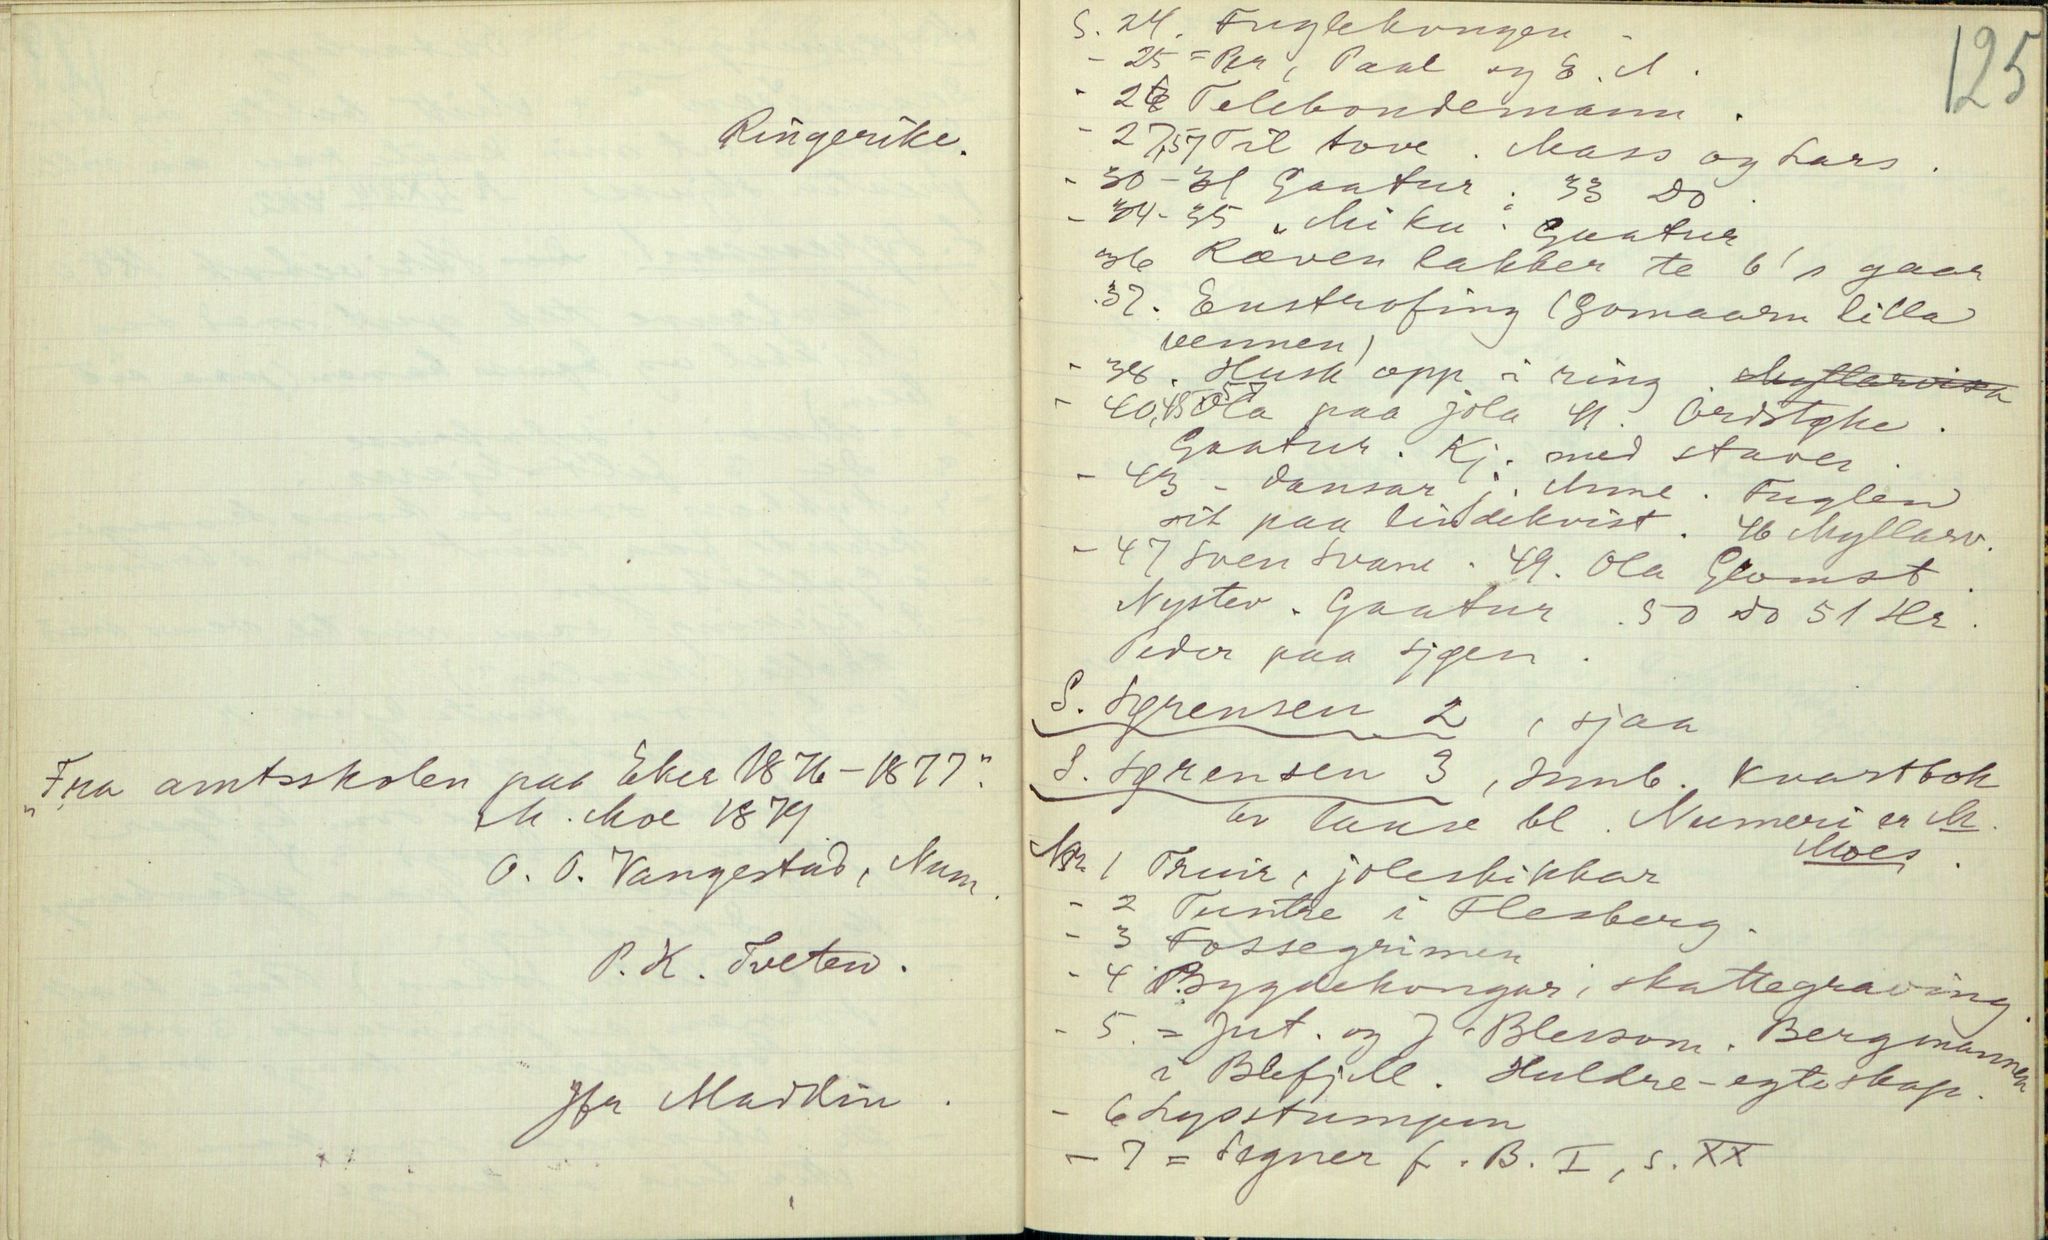 Ringerike.
"Fra amtsskolen paa Eker 1876-1877".
M. Moe 1879
O. O. Vangestad, Num.
P. K. Tveten.
Jfr Madlin.
125
S. 24. Fuglekongen
- 25 = Per, Paal og E. A.
- 26 Telebondemann.
- 27, 57 Til tove. Mass og Lars.
- 30-31 Gaatur; 33 Do.
- 34-35 Gaatur
36 Ræven lakker te b's gaar
37. Enstrofing (Gomaarn lilla
vennen)
- 38. Husk opp i ring. Myllarvisa
- 40, 45, 57 Ola paa jola 41. Ordstøke.
Gaatur. Kj. med staver.
- 43 - dansar j. Anne. Fuglen
sit paa lindekvist. 46 Myllarv.
- 47 Sven Svane. 49. Ola Glomst.
Nystev. Gaatur. 50 do 51 Hr.
Peder paa sjøen.
S. Sørensen 2, sjaa
S. Sørensen 3, Innb. Kvartbok
av lause bl. Numeri er M.
Moes.
Nr. 1 Truir, joleskikkar
- 2 Tuntre i Flesberg.
- 3 Fossegrimen
- 4 Bygdekongar, skattegraving.
- 5. = Jut. og J. Blessom. Bergmannen
i Blefjell. Huldre-egteskap.
- 6 Lysstumpen
- 7 = Segner f. B. I, s. XX